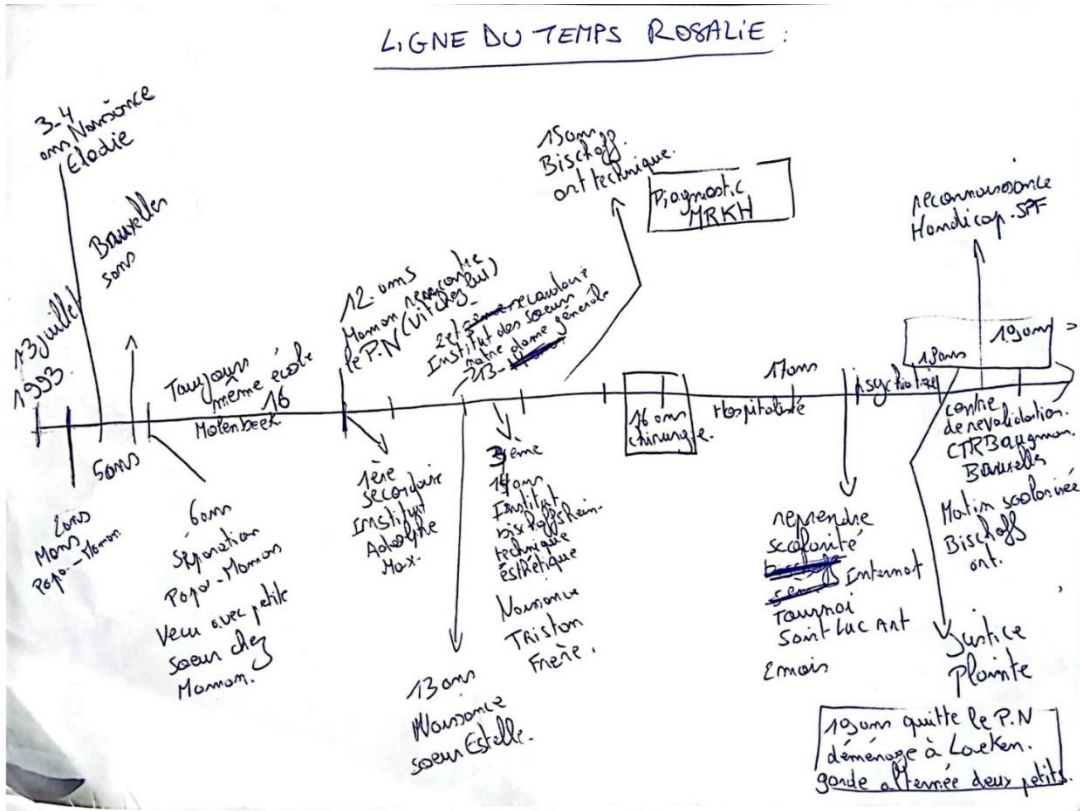 LIGNE DU TEMPS ROSALIE :
13 juillet
1993.
3-4
ans Naissance
Elodie
Bruxelles
5ans
2ans
Mons
Papa-Maman
5ans
6ans
Séparation
Papa-Maman
Vecu avec petite
soeur chez
Maman.
Toujours
même école
16
Molenbeek
12 ans
Maman rencontre
le P.N (vit chez lui)
1ère
secondaire
Institut
Adolphe
Max.
2e secondaire
Institut des soeurs
notre dame générale
13-
13 ans
Naissance
soeur Estelle.
3ème
14ans
Institut
bischoffsheim
technique
esthétique
Naissance
Tristan
Frère.
15ans
Bischoff.
art technique.
Diagnostic
MRKH
16 ans
chirurgie.
Hospitalisée
17ans
psychiatrie
reprendre
scolarité
Internat
Tournai
Saint Luc Art
2 mois
reconnaissance
Handicap-SPF
19ans
centre
de revalidation.
CTR
Bruxelles
Matin scolarisée
Bischoff
art.
Justice
Plainte
19ans quitte le P.N
déménage à Laeken.
garde alternée deux petits.